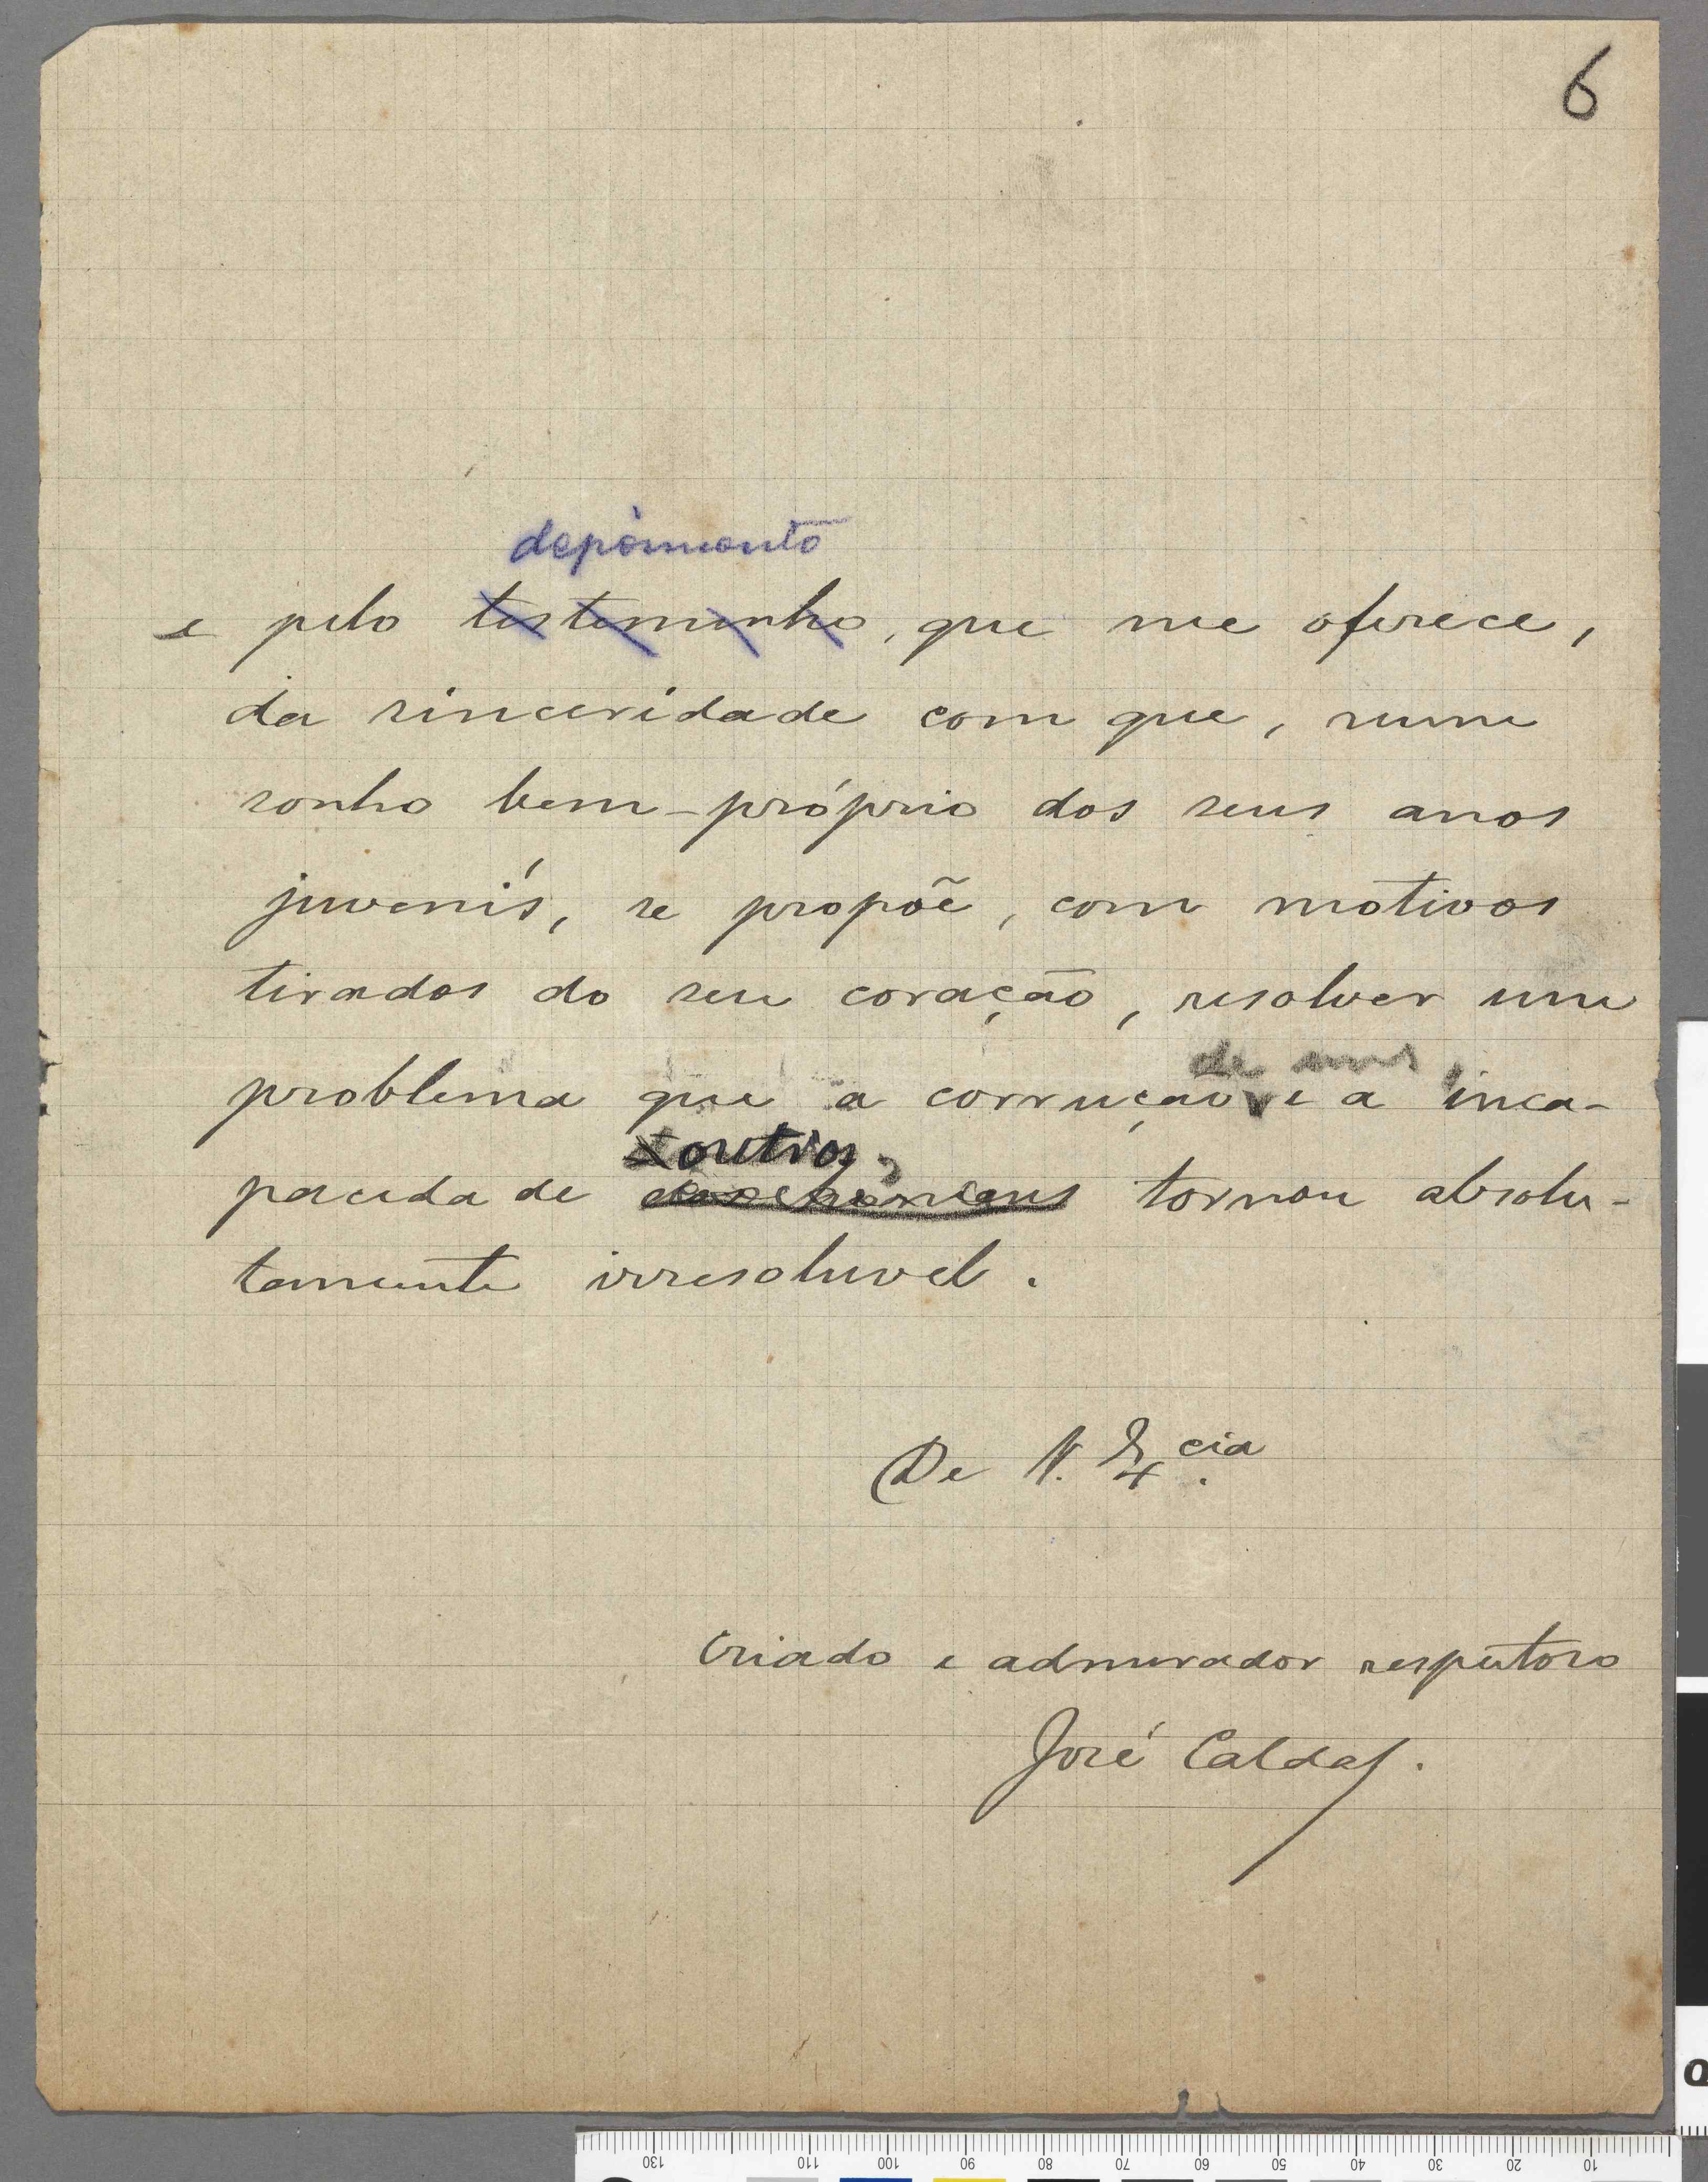 6
depòimento
e pelo testemunho, que me oferece,
da sinceridade com que, num
sonho bem-próprio dos seus anos
juvenís, se propõe, com motivos
tirados do seu coração, resolver um
de uns,
problema que a corrução e a inca-
outros,
pacidade tornou absolu-
tamente irresoluvel.
De V. Ex.cia
Criado e admirador respeitoso
José Caldas.
130 110 100 90 80 70 60 50 40 30 20 10